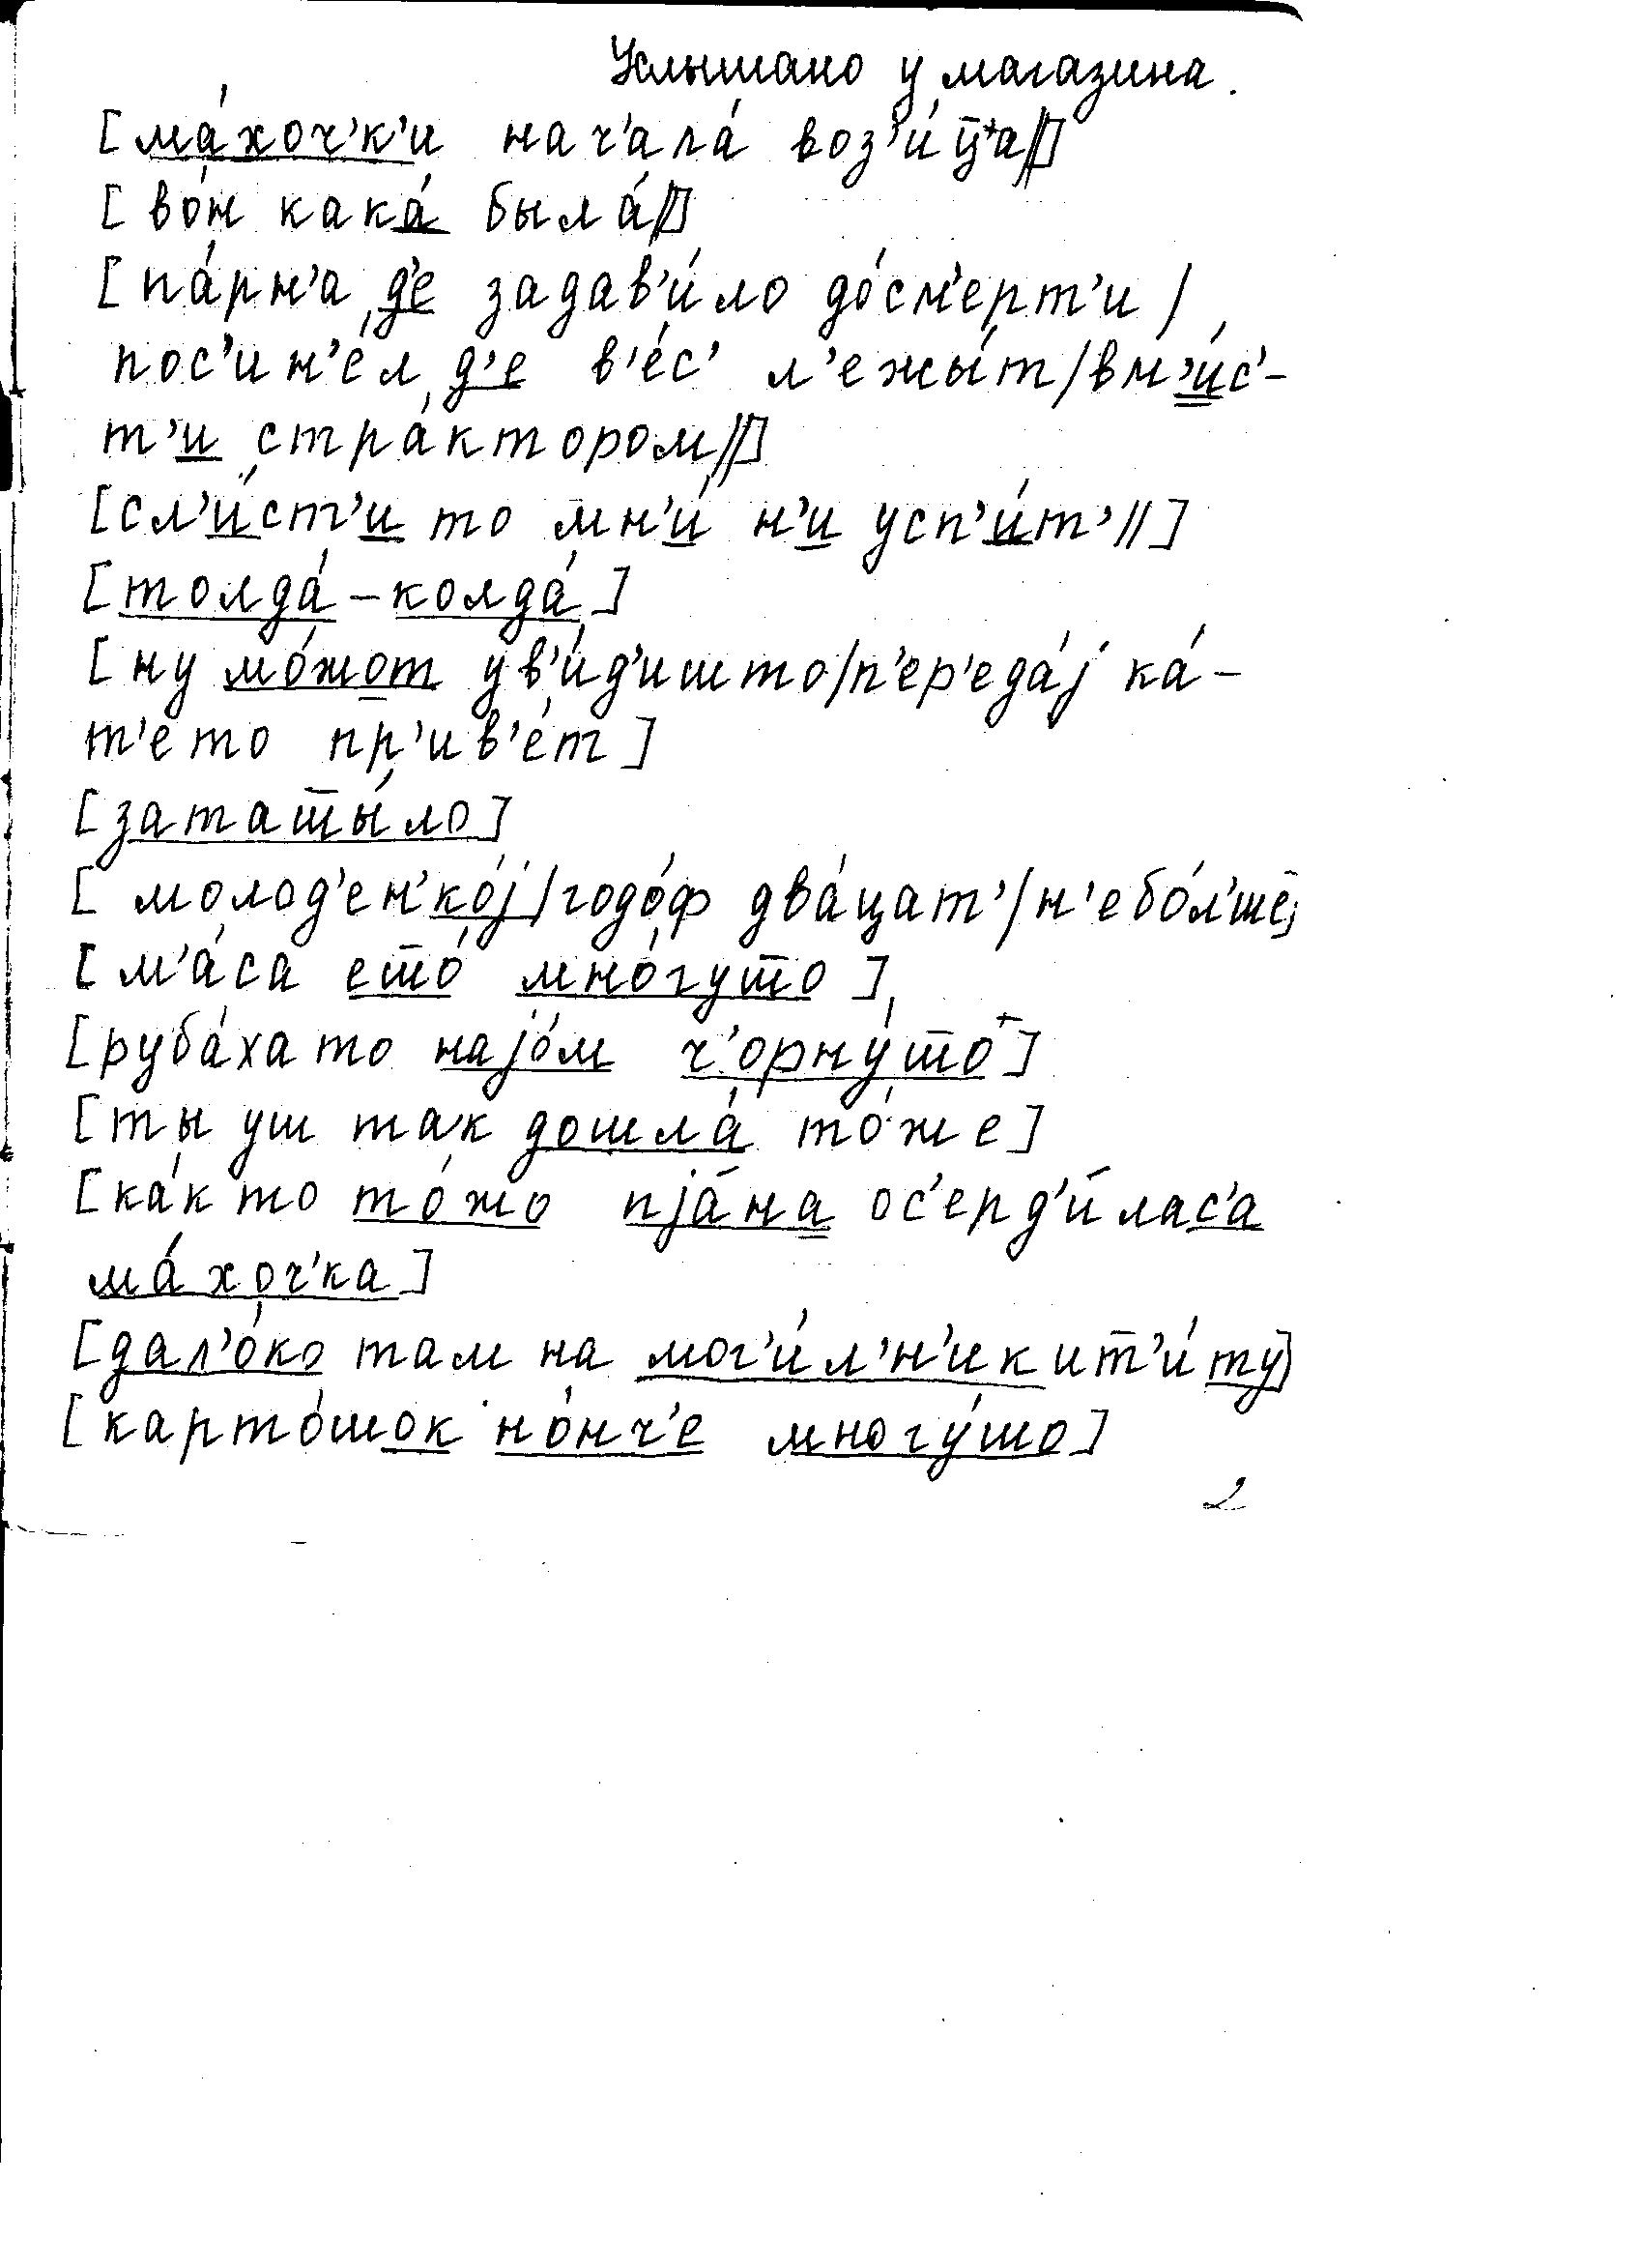 Услышано у магазина.
[ма́хоч’к’и нач’ала́ воз’и́ц̅а//]
[во́н кака́ была́//]
[па́рн’а д’е задав’и́ло до́см’ерт’и /
пос’ин’е́л д’е в’е́с’ л’ежы́т/вм’и́с’-
т’и стра́ктором//]
[сл’и́ст’и то мн’и́ н’и усп’и́т’//]
[толда́-колда́]
[ну мо́жот ув’и́д’ишто/п’ер’еда́j ка́-
т’ето пр’ив’е́т]
[затат̅ы́ло]
[молод’ен’ко́j/годо́ф два́цат’/н’ебо́л’ше]
[м’а́са ет̅о́ мно́гут̅о]
[руба́хато наjо́м ч’орну́т̅о]
[ты уш так дошла́ то́же]
[ка́кто то́жо пjа́на ос’ерд’и́лас’а
ма́хоч’ка]
[дал’о́ко там на мог’и́л’н’ик ит̅’и́ ту]
[карто́шок но́нч’е многу́шо]
2